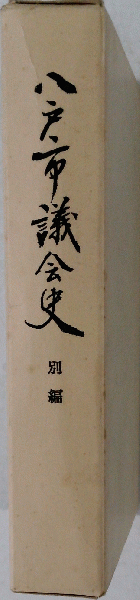 八戸市議会史
別編